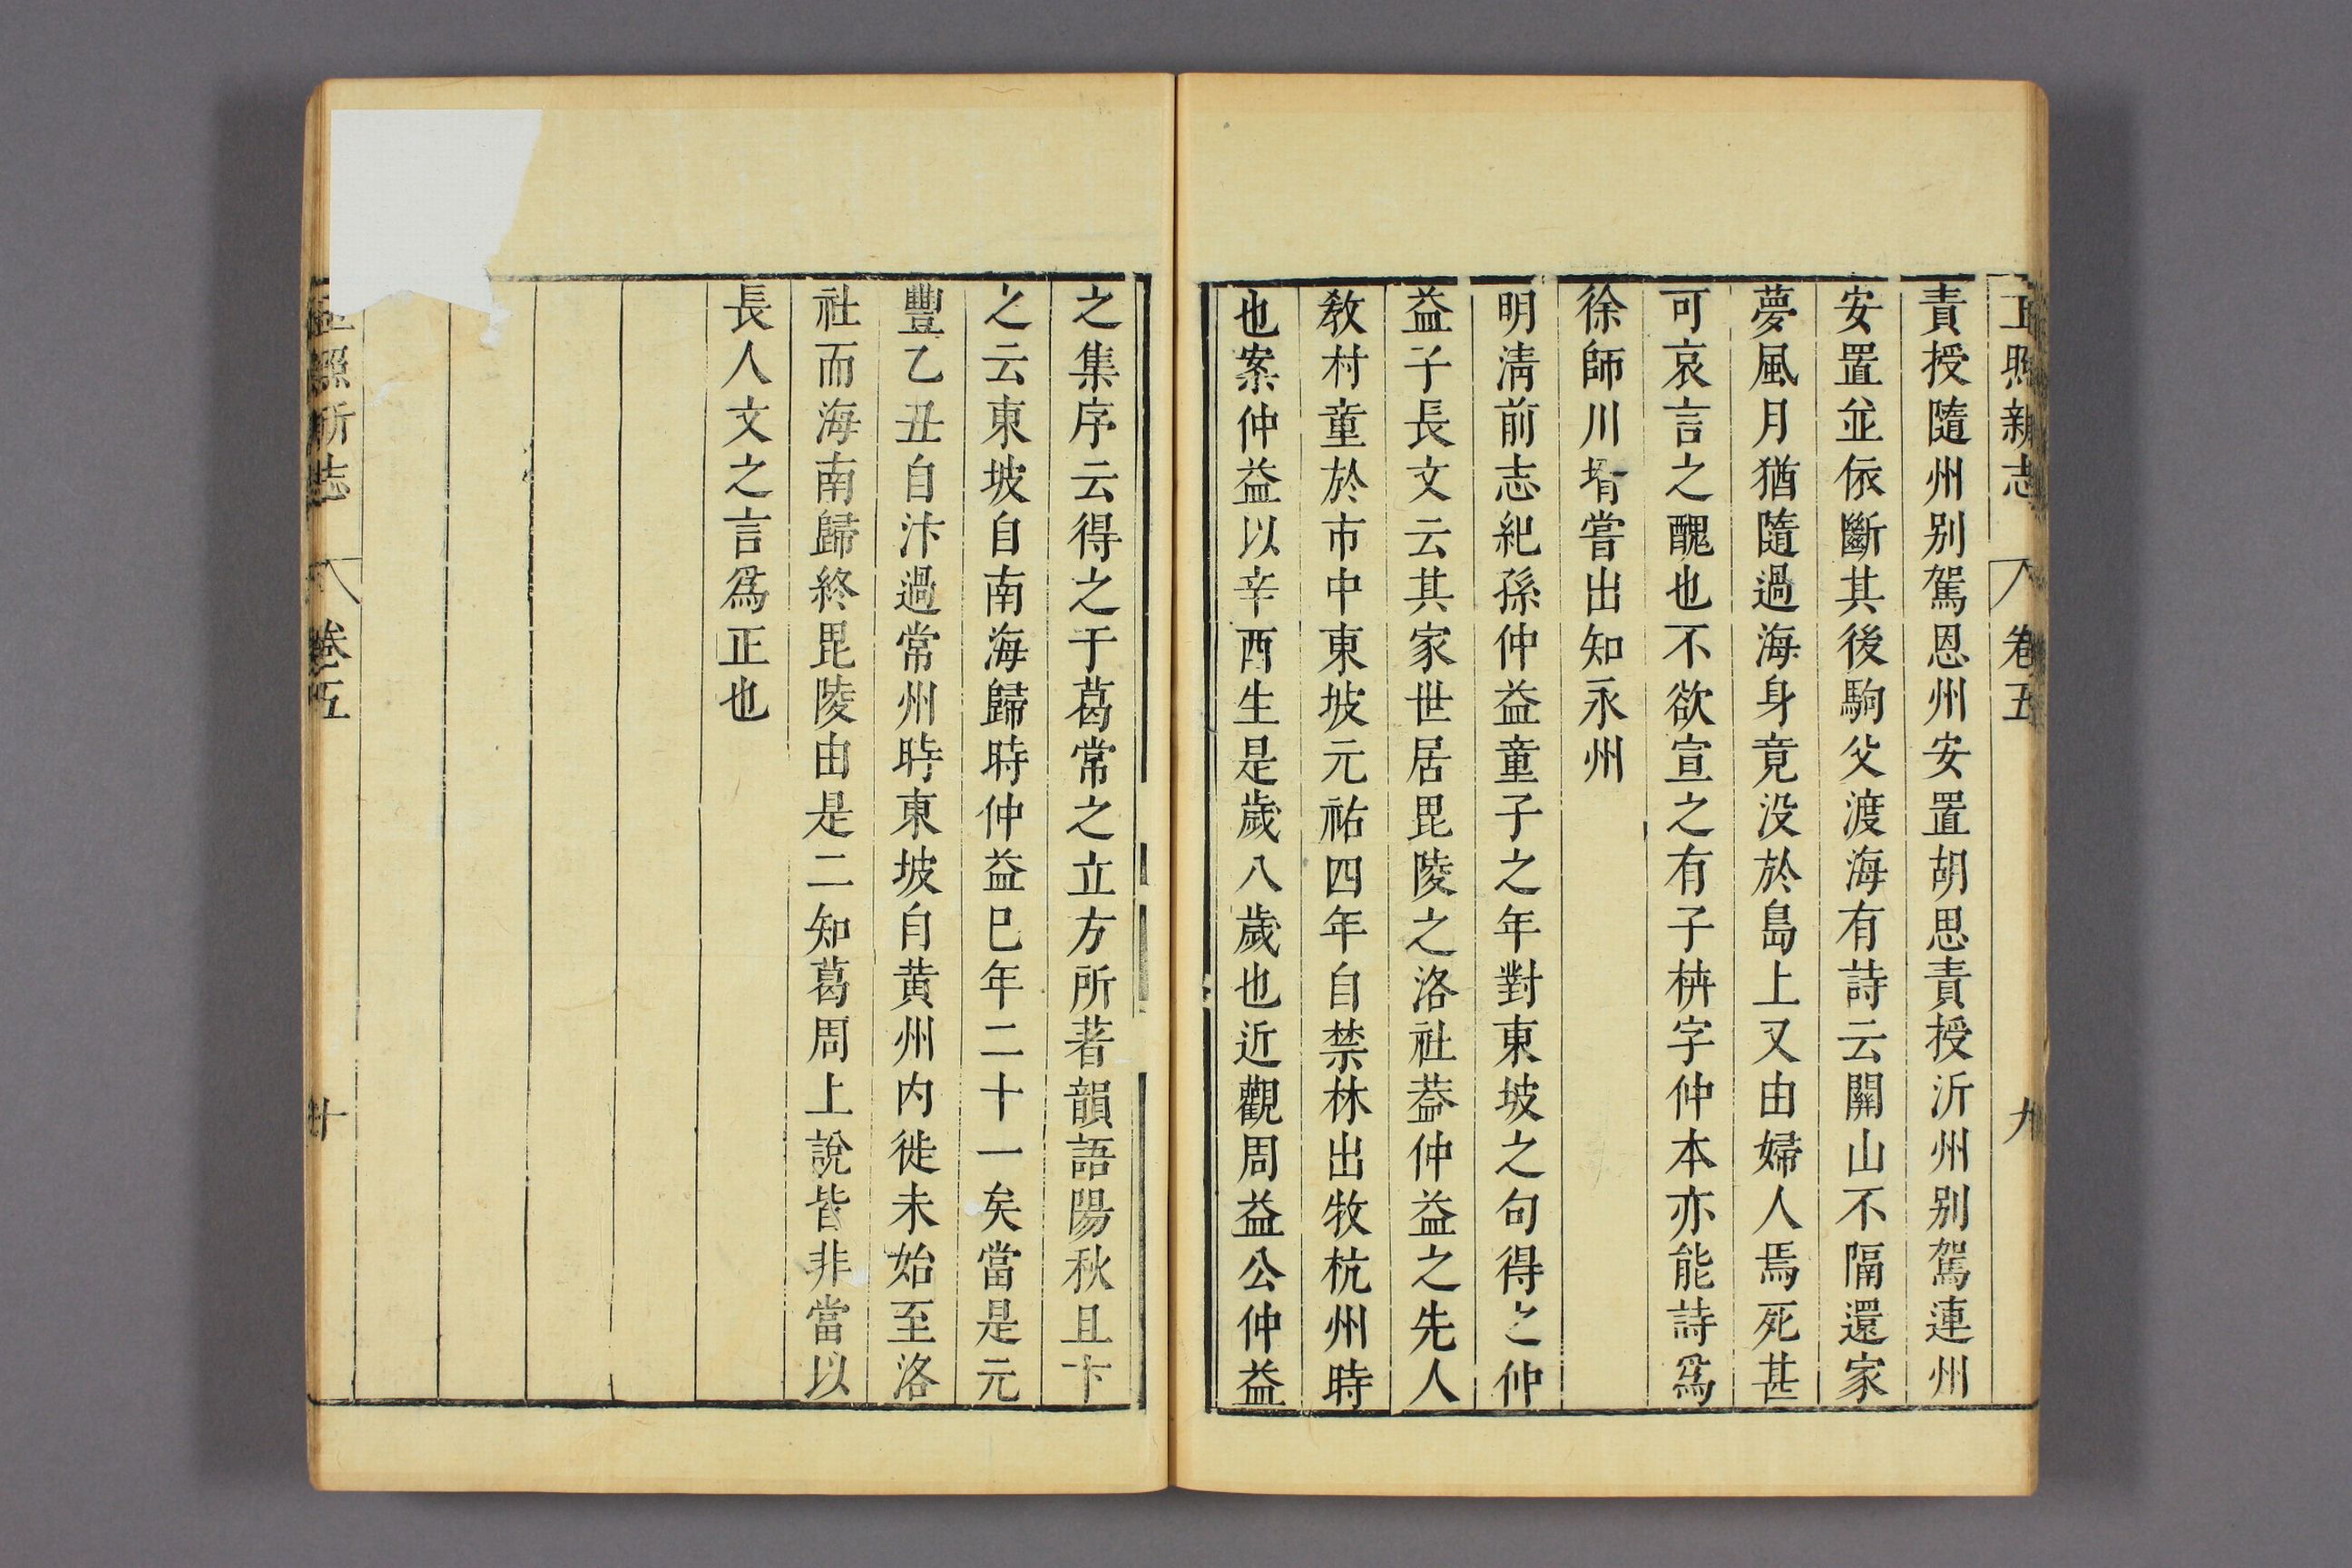 玉照新志　卷五　九
責授隨州别駕恩州安置胡思責授沂州别駕連州
安置並依斷其後駒父渡海有詩云關山不隔還家
夢風月猶隨過海身竟没於島上又由婦人焉死甚
可哀言之醜也不欲宣之有子栟字仲本亦能詩爲
徐師川壻嘗出知永州
明淸前志紀孫仲益童子之年對東坡之句得之仲
益子長文云其家世居毘陵之洛社葢仲益之先人
敎村童於市中東坡元祐四年自禁林出牧杭州時
也案仲益以辛酉生是歲八歲也近觀周益公仲益
之集序云得之于葛常之立方所著韻語陽秋且卞
之云東坡自南海歸時仲益巳年二十一矣當是元
豐乙丑自汴過常州時東坡自黄州内徙未始至洛
社而海南歸終毘陵由是二知葛周上說皆非當以
長人文之言爲正也
玉照新志　卷五　十